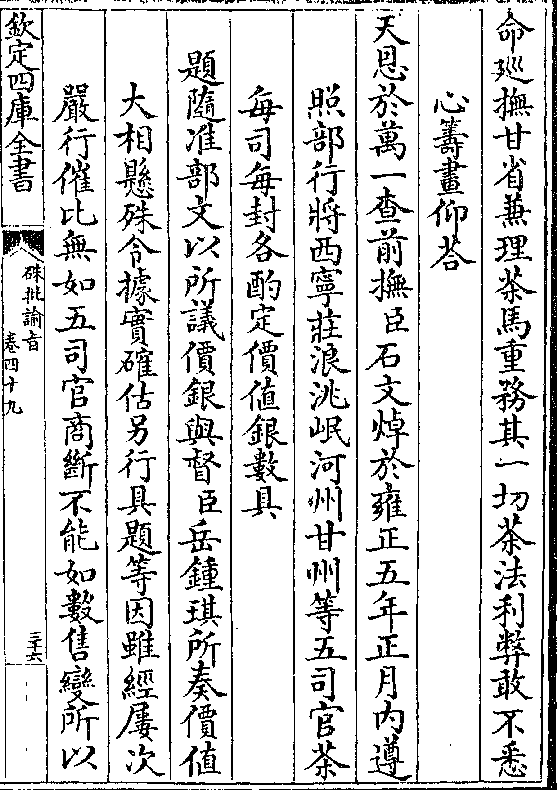 命廵撫甘省兼理茶馬重務其一切茶法利弊敢不悉
心籌畫仰荅
天恩於萬一查前撫臣石文焯於雍正五年正月內遵
照部行將西寧莊浪洮岷河州甘州等五司官茶
每司每封各酌定價值銀數具
題隨准部文以所議價銀與督臣岳鍾琪所奏價值
大相懸殊令據實確估另行具題等因雖經屢次
嚴行催比無如五司官商斷不能如數售變所以
欽定四庫全書
硃批諭旨
卷四十九
三十六